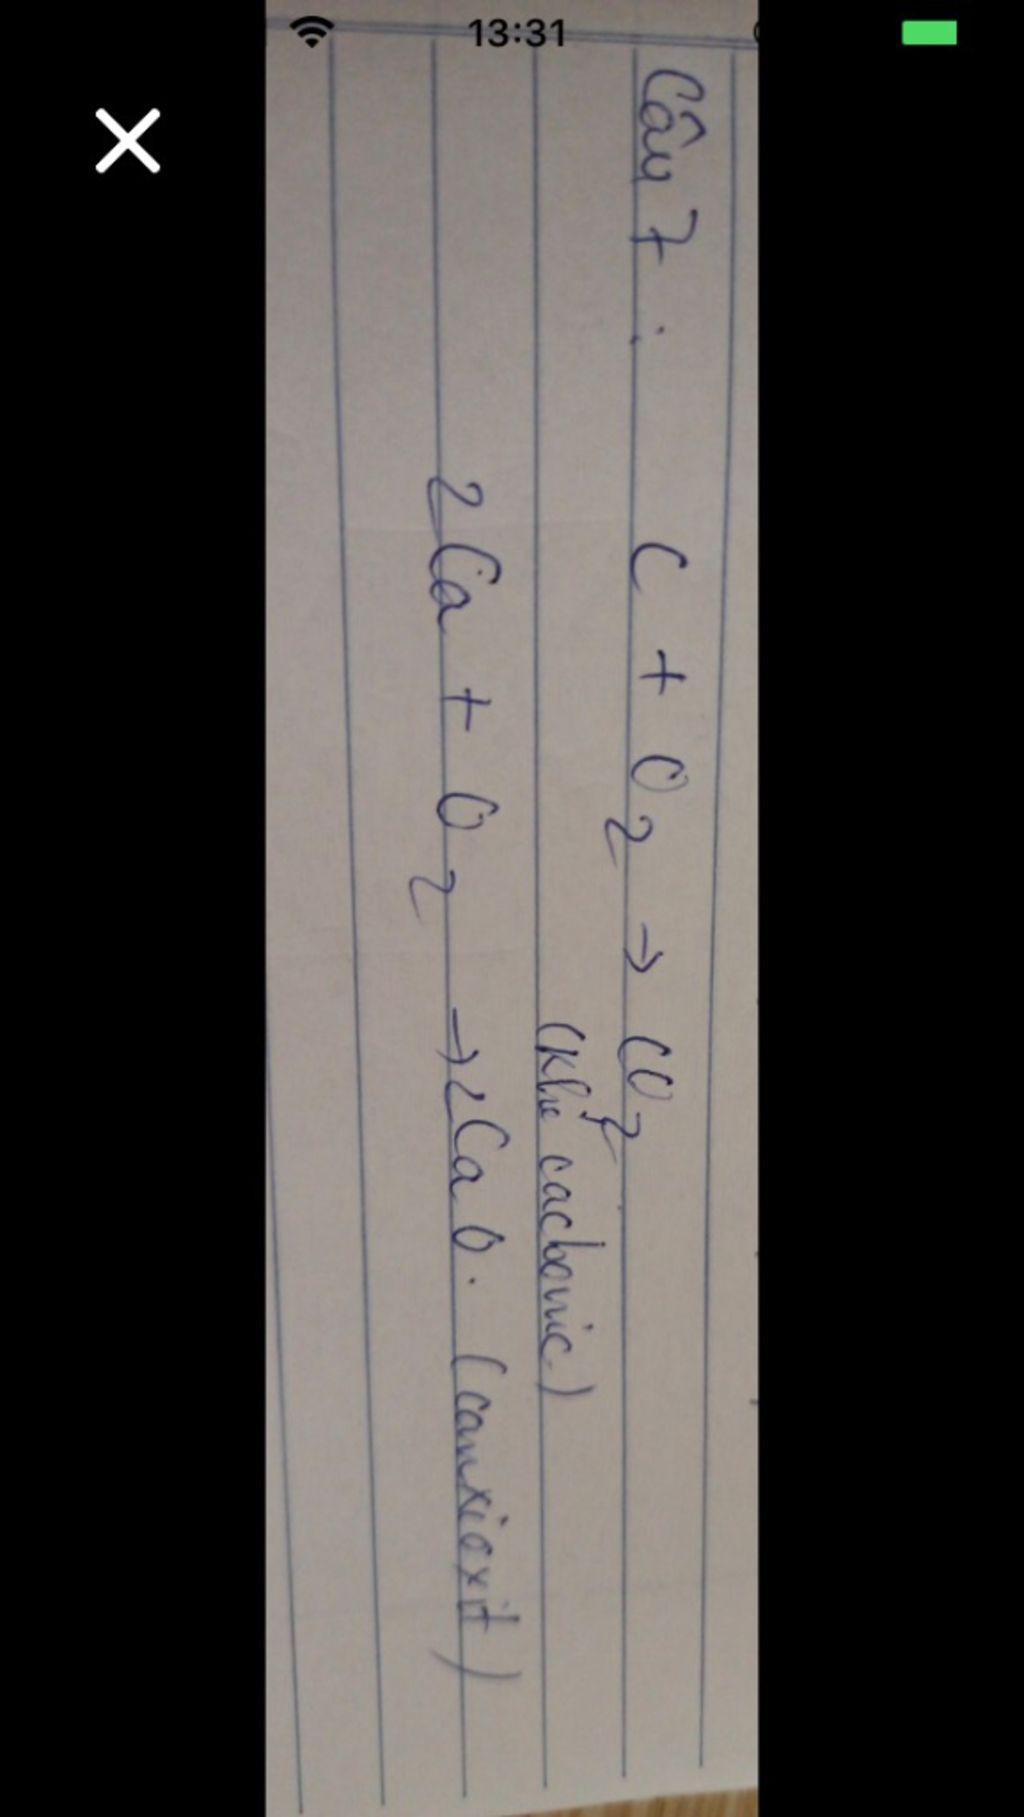 13:31
Câu 7. C + O2 → CO2
(Khí cacbonic)
2Ca + O2 → 2CaO. (canxioxit)